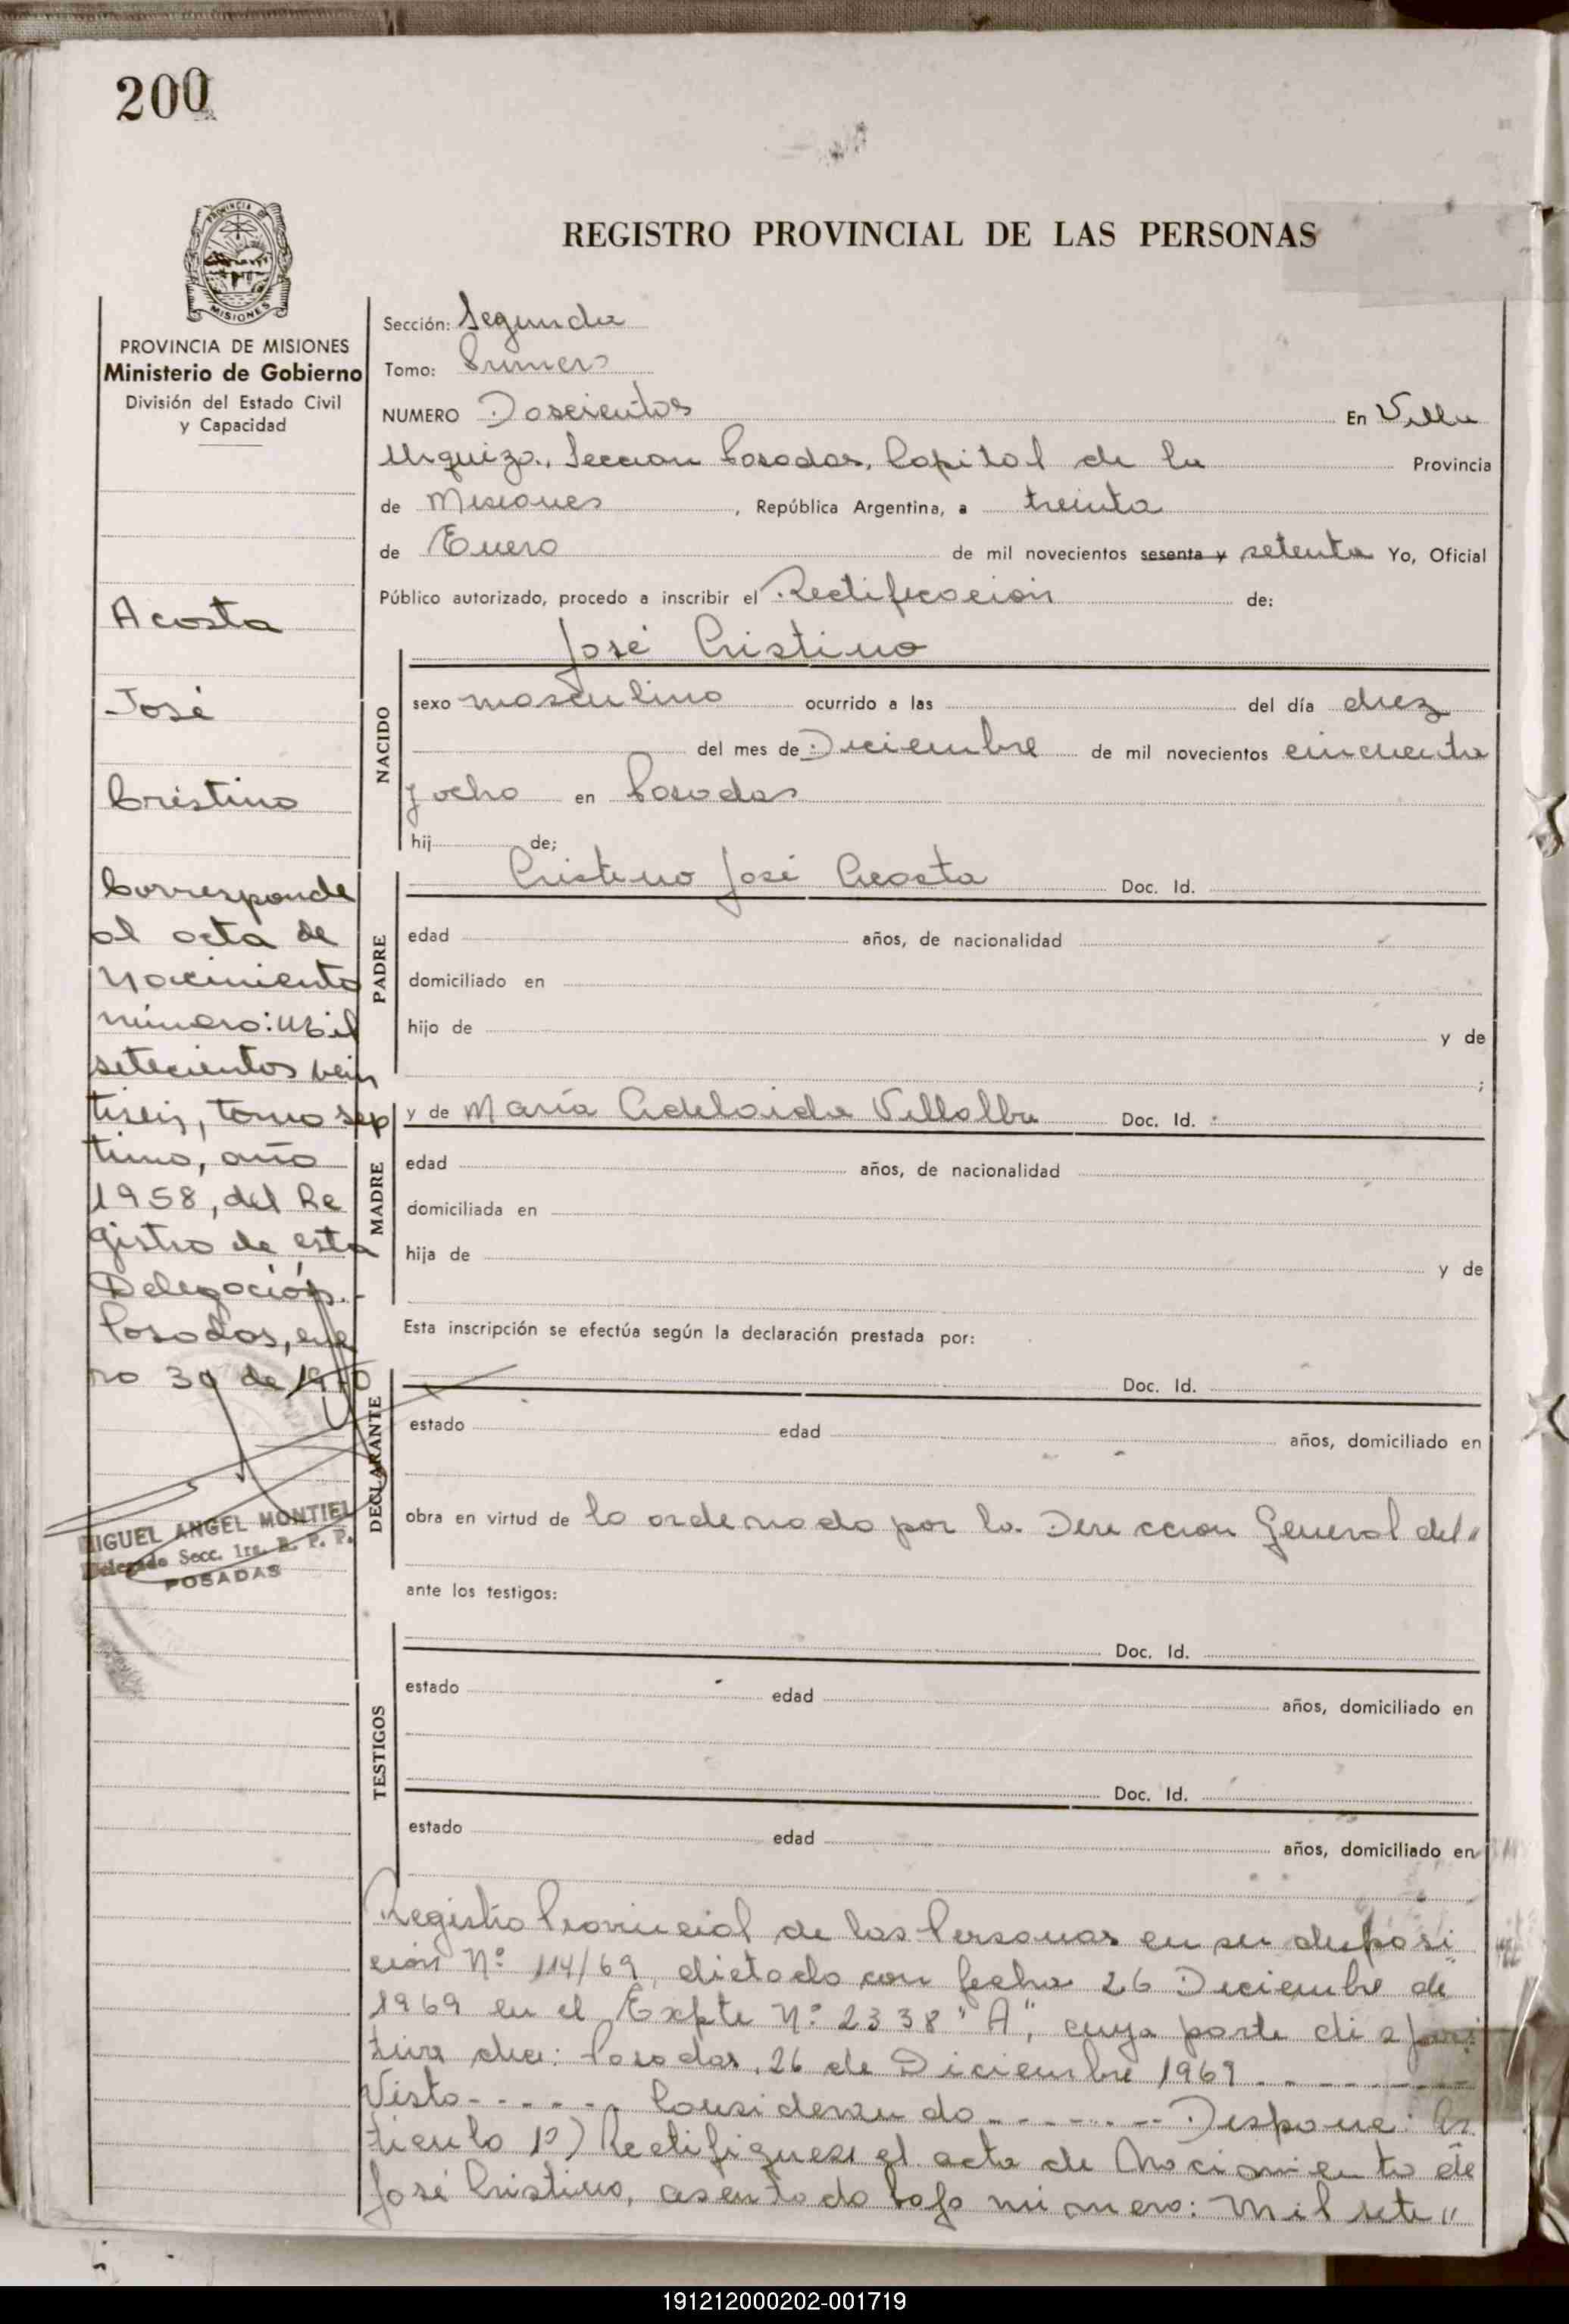 200
PROVINCIA DE
MISIONES
REGISTRO PROVINCIAL DE LAS PERSONAS
PROVINCIA DE MISIONES
Ministerio de Gobierno
División del Estado Civil
y Capacidad
Acosta
José
Cristino
Corresponde
al acta de
Nacimiento
número: Mil
setecientos vein
tiseis, tomo sep
timo, año
1958, del Re
gistro de esta
Delegación.-
Posadas, ene
ro 30 de 1970
MIGUEL ANGEL MONTIEL
Delegado Secc. 1ra. R. P. P.
POSADAS
Sección: Segunda
Tomo: Primero
NUMERO Doscientos En Villa
Urquiza, Seccion Posadas, Capital de la Provincia
de Misiones, República Argentina, a treinta
de Enero de mil novecientos sesenta y setenta Yo, Oficial
Público autorizado, procedo a inscribir el Rectificacion de:
José Cristino
NACIDO
sexo masculino ocurrido a las del día diez
del mes de Diciembre de mil novecientos cincuenta
y ocho en Posadas
hij de;
PADRE
Cristino José Acosta Doc. Id.
edad años, de nacionalidad
domiciliado en
hijo de y de
;
MADRE
y de María Adelaida Villalba Doc. Id.
edad años, de nacionalidad
domiciliada en
hija de y de
Esta inscripción se efectúa según la declaración prestada por:
DECLARANTE
Doc. Id.
estado edad años, domiciliado en
obra en virtud de lo ordenado por la Direccion General del "
ante los testigos:
TESTIGOS
Doc. Id.
estado edad años, domiciliado en
Doc. Id.
estado edad años, domiciliado en
Registro Provincial de las Personas en su disposi
cion Nº 114/69, dictado con fecha 26 Diciembre de
1969 en el Expte Nº 2338 "A", cuya parte disposi
tiva dice: Posadas, 26 de Diciembre 1969 - - - - -
Visto - - - - - Considerando - - - - - Dispone: Ar
ticulo 1º) Rectifiquese el acta de Nacimiento de
José Cristino, asentado bajo numero: Mil sete "
191212000202-001719